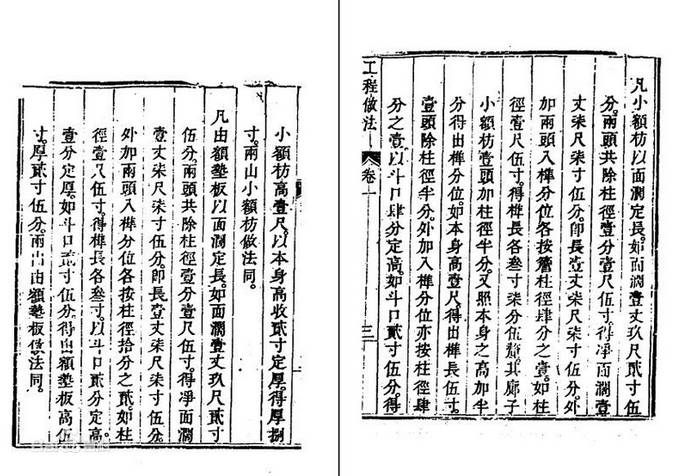 凡小額枋以面濶定長。如面濶壹丈玖尺貳寸伍
分。兩頭共除柱徑壹分壹尺伍寸。得凈面濶壹
丈柒尺柒寸伍分。卽長壹丈柒尺柒寸伍分。外
加兩頭入榫分位。各按簷柱徑肆分之壹。如柱
徑壹尺伍寸。得榫長各叁寸柒分伍釐。其廊子
小額枋。壹頭加柱徑半分。又照本身之高加半
分。得出榫分位。如本身高壹尺。得出榫長伍寸。
壹頭除柱徑半分。外加入榫分位。亦按柱徑肆
分之壹。以斗口肆分定高。如斗口貳寸伍分。得
工程做法 卷一 三
小額枋高壹尺。以本身高收貳寸定厚。得厚捌
寸。兩山小額枋做法同。
凡由額墊板以面濶定長。如面濶壹丈玖尺貳寸
伍分。兩頭共除柱徑壹分壹尺伍寸。得凈面濶
壹丈柒尺柒寸伍分。卽長壹丈柒尺柒寸伍分。
外加兩頭入榫分位。各按柱徑拾分之貳。如柱
徑壹尺伍寸。得榫長各叁寸。以斗口貳分定高。
壹分定厚。如斗口貳寸伍分。得出由額墊板高伍
寸。厚貳寸伍分。兩山由額墊板做法同。